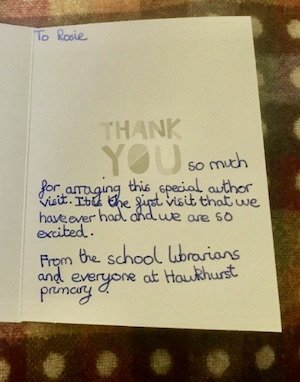 To Rosie
THANK
YOU so much
for arraging this special author
visit. It is the first visit that we
have ever had and we are so
excited.
From the school librarians
and everyone at Hawkhurst
primary.